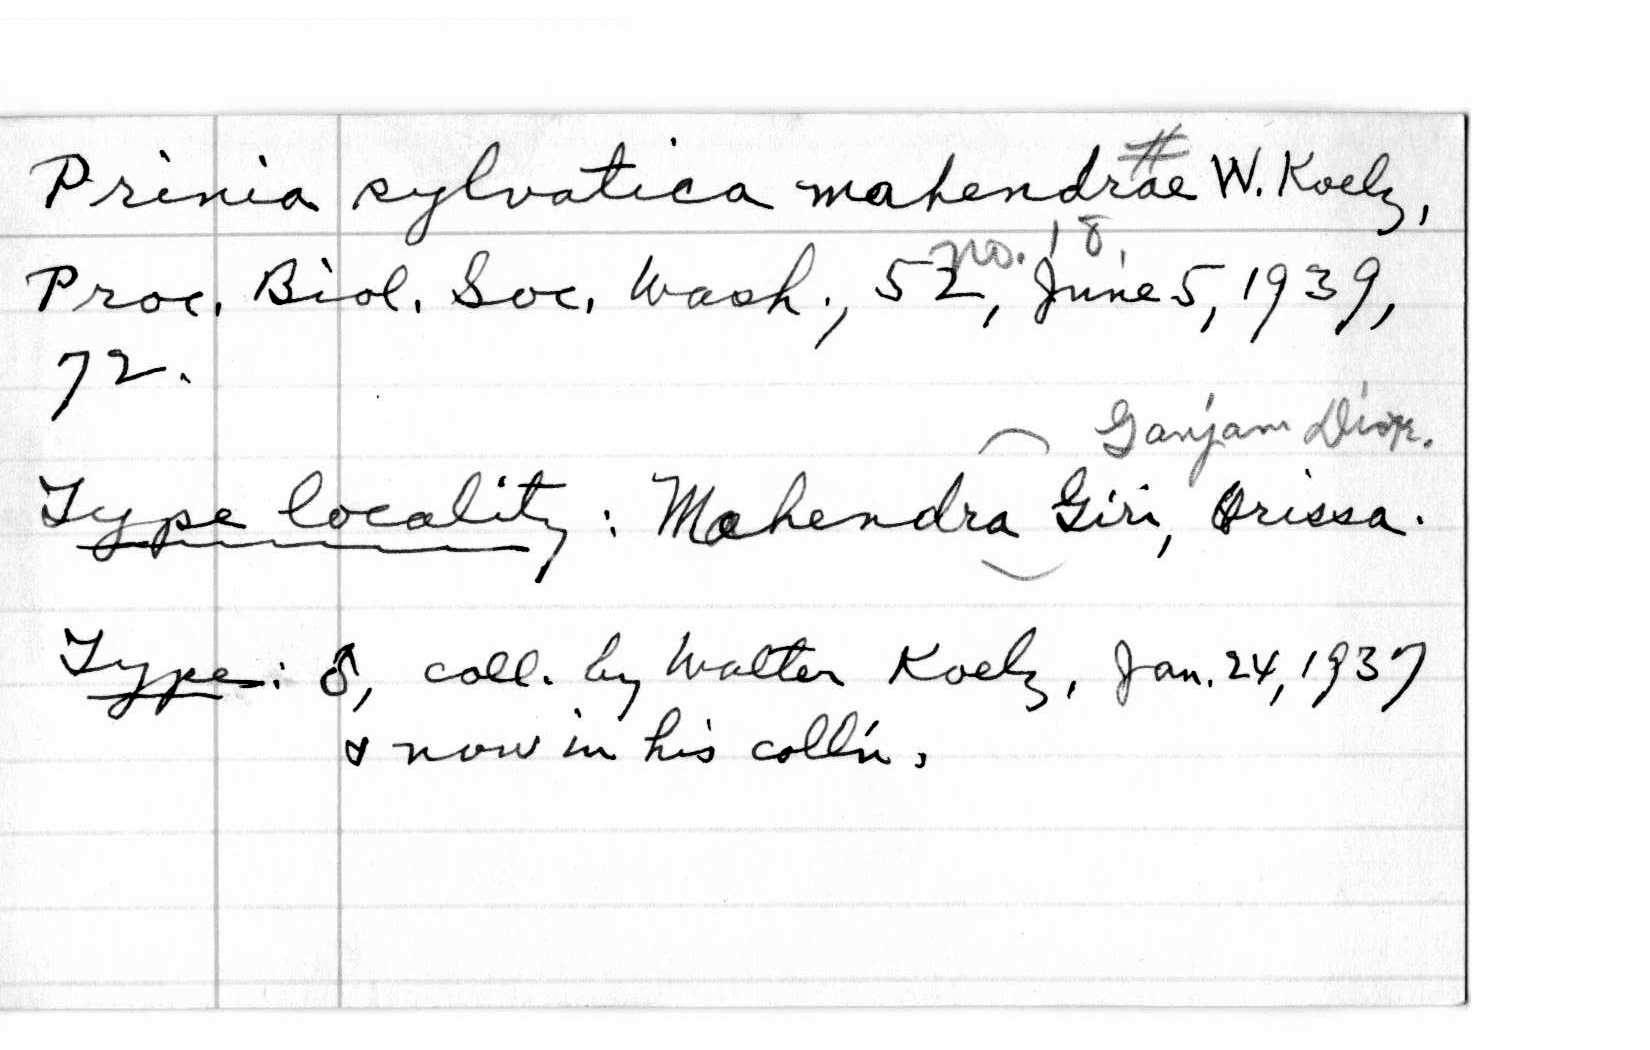 Prinia sylvatica mahendrae W. Koelz,
#
Proc. Biol. Soc. Wash., 52, June 5, 1939,
no. 18,
72.
Ganjam Distr.
Type locality: Mahendra Giri, Orissa.
Type: ♂, coll. by Walter Koelz, Jan. 24, 1937
& now in his coll'n.